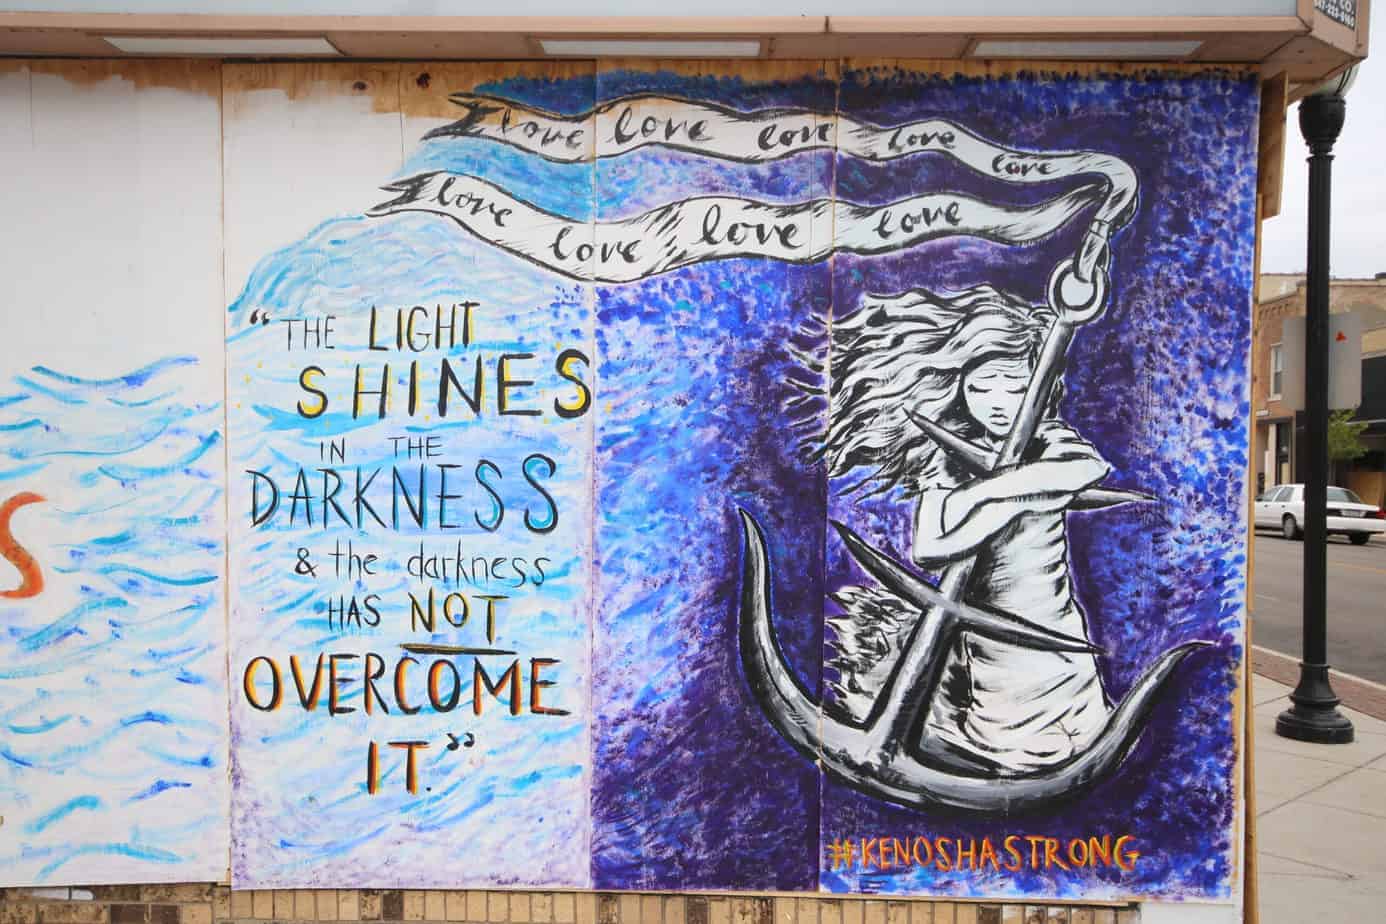 love love love love love
love love love love
"THE LIGHT
SHINES
IN THE
DARKNESS
& the darkness
HAS NOT
OVERCOME
IT."
#KENOSHASTRONG
S